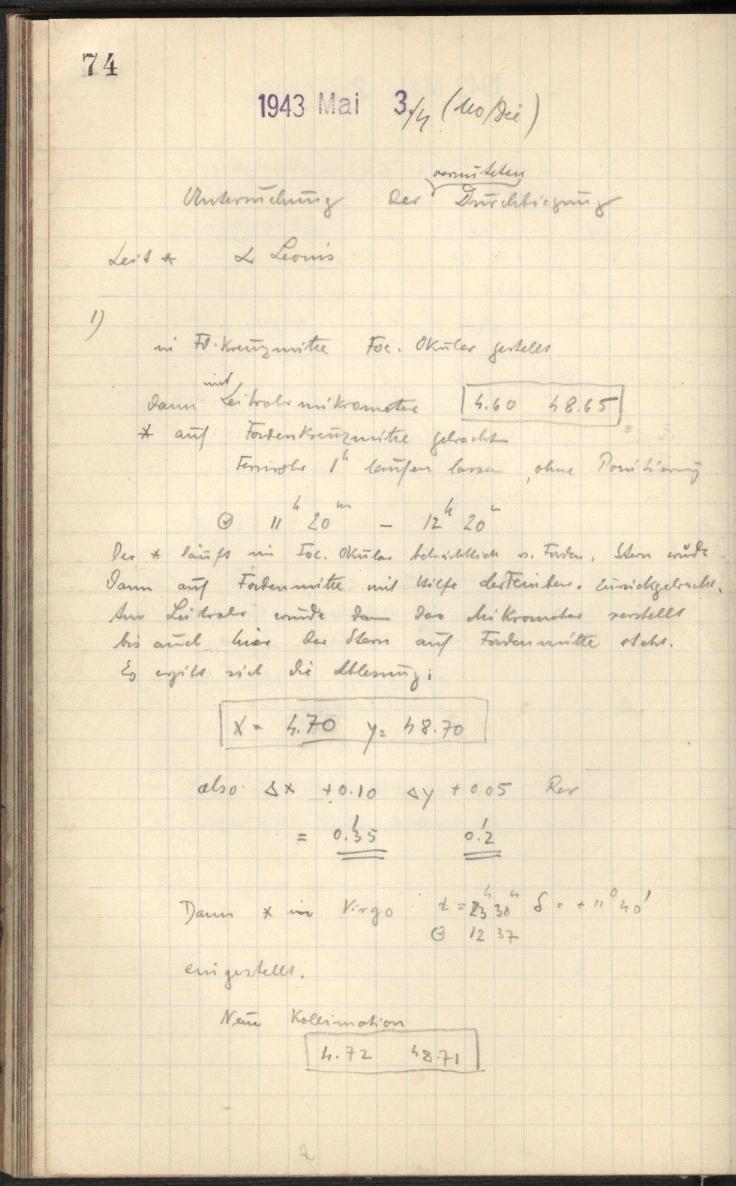 74
1943 Mai 3./4 (Mo/Die)
vermuteten
Untersuchung der Durchbiegung
Leit * α Leonis
1)
in Fd. Kreuzmitte Foc. Okular gestellt
mit
dann Leitrohrmikrometer 4.60 48.65
* auf Fadenkreuzmitte gebracht
Fernrohr 1h laufen lassen, ohne Pointierung
Θ 11h 20m – 12h 20m
Der * läuft im Foc. Okular beträchtlich v. Faden. Stern wurde
dann auf Fadenmitte mit Hilfe der Feinbew. zurückgebracht.
Am Leitrohr wurde dann das Mikrometer verstellt
bis auch hier der Stern auf Fadenmitte steht.
Es ergibt sich die Ablesung:
X = 4.70 y = 48.70
also Δx +0.10 Δy +0.05 Rev
= 0.'35 0.'2
Dann * in Virgo t = 23h 38m δ = +11° 40'
Θ 12 37
eingestellt.
Neue Kollimation
4.72 48.71